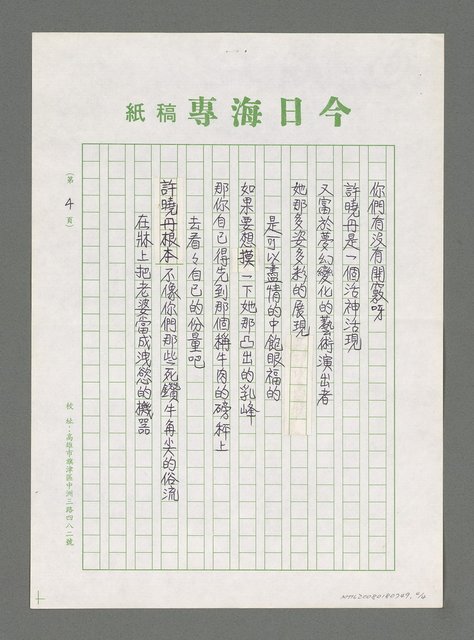 今日海專 稿紙
你們有沒有開竅呀
許曉丹是一個活神活現
又富於夢幻變化的藝術演出者
她那多姿多彩的展現
是可以盡情的中飽眼福的
如果要想摸一下她那凸出的乳峰
那你自已得先到那個稱牛肉的磅秤上
去看々自已的份量吧
許曉丹根本不像你們那些死鑽牛角尖的俗流
在牀上把老婆當成洩慾的機器
(第 4 頁)
校址:高雄市旗津區中洲三路四八二號
NMTL20080180709, 4/4